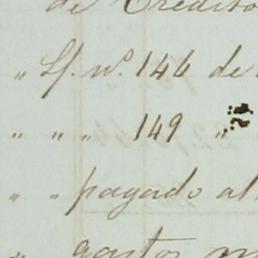 de Credito
" Lf. nº. 146 de
" " " 149 "
" " pagado al
" gastos